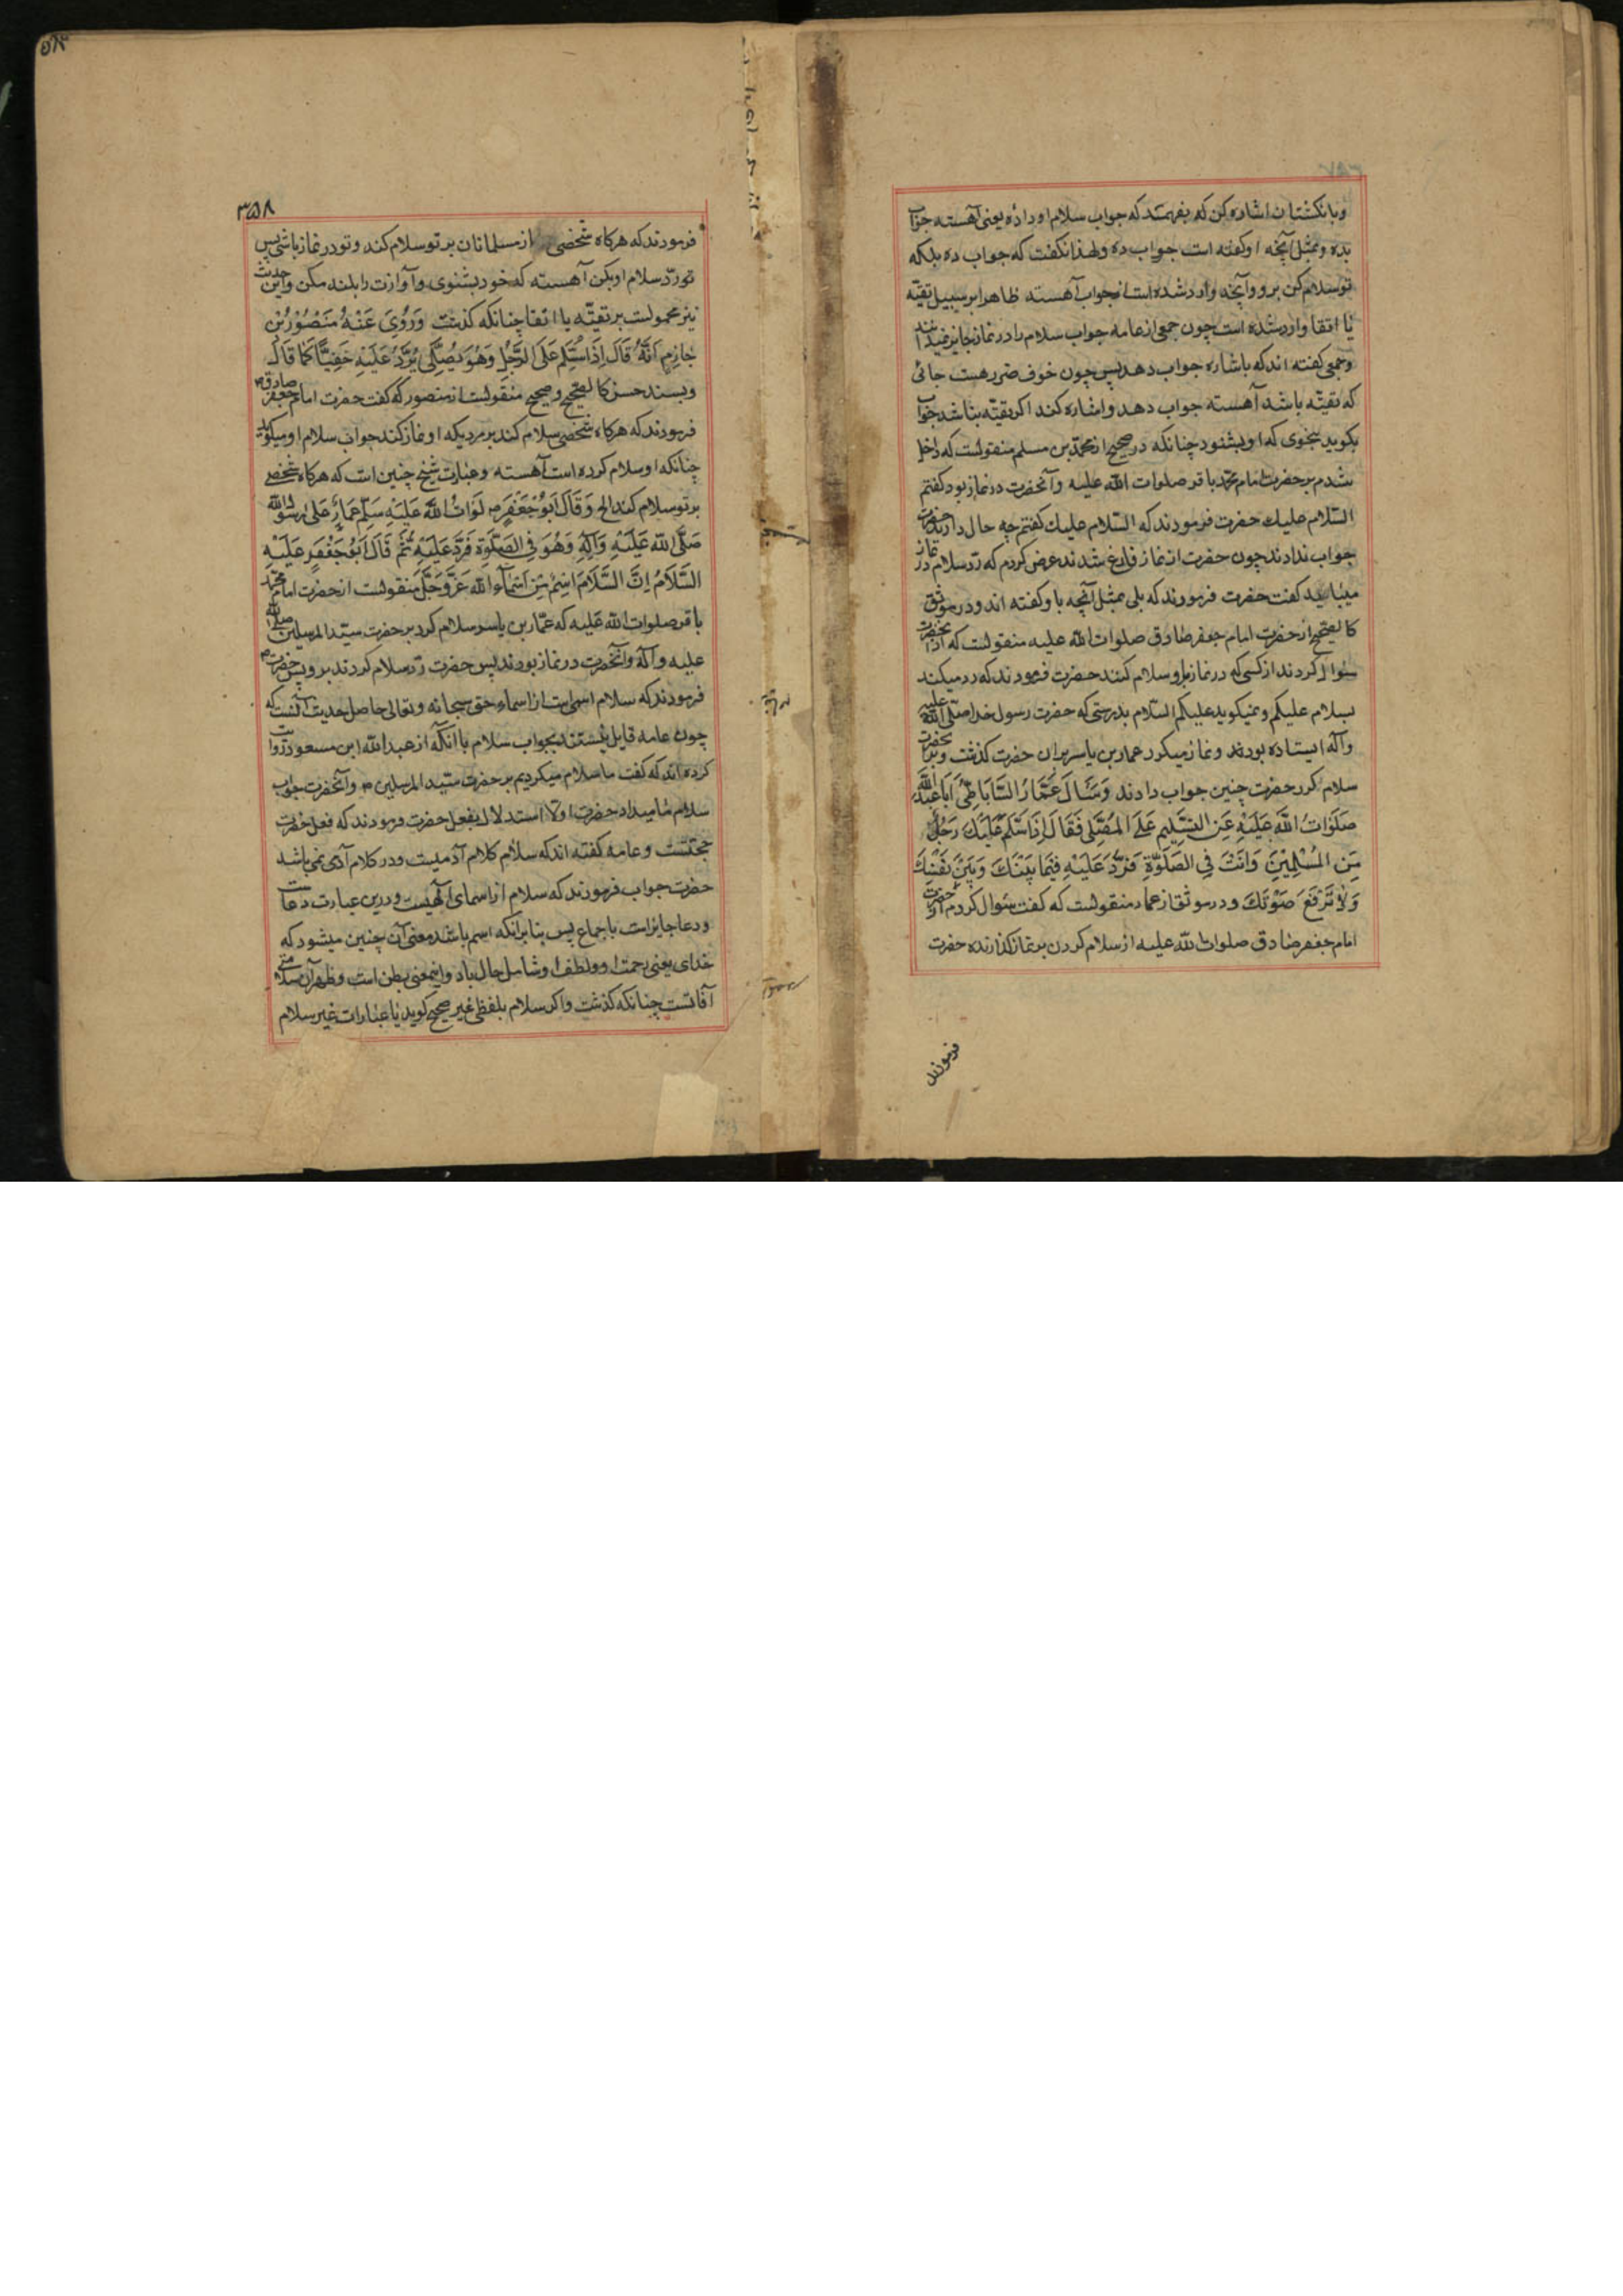 و بانگشتان اشاره کن که بفهمند که جواب سلام او داده یعنی آهسته جواب
بده و بمثل آنچه او کفته است جواب ده و لهذا نکفت که جواب ده بلکه
تو سلام کن برو و آنچه وارد شده است از جواب آهسته ظاهرا بر سبیل تقیّه
یا اتقا وارد شده است چون جمعی از عامه جواب سلام را در نماز جایز نمیدانند
و جمعی کفته اند که باشاره جواب دهد پس چون خوف ضرر هست جائی
که تقیّه باشد آهسته جواب دهد و اشاره کند اکر تقیّه نباشد جواب
بکوید بنحوی که او بشنود چنانکه در صحیح از محمّد بن مسلم منقولست که داخل
شدم بر حضرت امام محمّد باقر صلوات الله علیه و آنحضرت در نماز بود کفتم
السّلام علیك حضرت فرمودند که السّلام علیك کفتم چه حال دارید حضرت
جواب ندادند چون حضرت از نماز فارغ شدند عرض کردم که ردّ سلام در نماز
میباید کفت حضرت فرمودند که بلی بمثل آنچه باو کفته اند و در موثق
کالصّحیح از حضرت امام جعفر صادق صلوات الله علیه منقولست که از آنحضرت
سئوال کردند از کسی که در نماز برو سلام کنند حضرت فرمودند که رد میکند
بسلام علیکم و نمیکوید علیکم السّلام بدرستی که حضرت رسول خدا صلّی الله علیه
و آله ایستاده بودند و نماز میکرد عمار بن یاسر بران حضرت کذشت و بر آنحضرت
سلام کرد حضرت چنین جواب دادند وَسَأَلَ عَمَّارُ السَّابَاطِيُّ اَبَا عَبْدِ اللَّهِ
صَلَوَاتُ اللَّهِ عَلَيْهِ عَنِ التَّسْلِيمِ عَلَى الْمُصَلِّي فَقَالَ اِذَا سَلَّمَ عَلَيْكَ رَجُلٌ
مِنَ الْمُسْلِمِيْنَ وَاَنْتَ فِي الصَّلَوةِ فَرُدَّ عَلَيْهِ فِيمَا بَيْنَكَ وَبَيْنَ نَفْسِكَ
وَلَا تَرْفَعْ صَوْتَكَ و در موثق از عمار منقولست که کفت سئوال کردم از حضرت
امام جعفر صادق صلوات الله علیه از سلام کردن بر نماز کذارنده حضرت
فرمودند
۳۵۸
فرمودند که هرکاه شخصی از مسلمانان بر تو سلام کند و تو در نماز باشی پس
تو ردّ سلام او بکن آهسته که خود بشنوی و آوازت را بلند مکن و این حدیث
نیز محمولست بر تقیّه یا اتقا چنانکه کذشت وَرُوِيَ عَنْهُ مَنْصُوْرُ بْنُ
حَازِمٍ اَنَّهُ قَالَ اِذَا سُلِّمَ عَلَى الرَّجُلِ وَهُوَ يُصَلِّي يَرُدُّ عَلَيْهِ خَفِيّاً كَمَا قَالَ
و بسند حسن کالصّحیح و صحیح منقولست از منصور که کفت حضرت امام جعفر صادق
فرمودند که هرکاه شخصی سلام کند بر مردی که او نماز کند جواب سلام او میکوید
چنانکه او سلام کرده است آهسته و عبارت شیخ چنین است که هرکاه شخصی
بر تو سلام کند الخ وَقَالَ اَبُوْ جَعْفَرٍ صَلَوَاتُ اللَّهِ عَلَيْهِ سَلَّمَ عَمَّارٌ عَلَى رَسُولِ اللَّهِ
صَلَّى اللَّهُ عَلَيْهِ وَآلِهِ وَهُوَ فِي الصَّلَوةِ فَرَدَّ عَلَيْهِ ثُمَّ قَالَ اَبُو جَعْفَرٍ عَلَيْهِ
السَّلَامُ اِنَّ السَّلَامَ اسْمٌ مِنْ اَسْمَاءِ اللَّهِ عَزَّ وَجَلَّ منقولست از حضرت امام محمّد
باقر صلوات الله علیه که عمّار بن یاسر سلام کرد بر حضرت سیّد المرسلین صلی الله
علیه و آله و آنحضرت در نماز بودند پس حضرت ردّ سلام کردند برو پس حضرت
فرمودند که سلام اسمی است از اسماء حق سبحانه و تعالی حاصل حدیث آنست که
چون عامه قایل نیستند بجواب سلام با آنکه از عبد الله ابن مسعود روایت
کرده اند که کفت ما سلام میکردیم بر حضرت سیّد المرسلین ص و آنحضرت جواب
سلام ما میداد حضرت اولا استدلال بفعل حضرت فرمودند که فعل حضرت
حجتست و عامه کفته اند که سلام کلام آدمیست و در کلام آدمی نمی باشد
حضرت جواب فرمودند که سلام از اسمای الهیست و درین عبارت دعاست
و دعا جایز است باجماع پس بنابر آنکه اسم باشد معنی آن چنین میشود که
خدای یعنی رحمت او و لطف او شامل حال باد و این معنی بطن است و ظهر آن سلامتی
آفاتست چنانکه کذشت و اکر سلام بلفظی غیر صحیح کوید یا عبارات غیر سلام